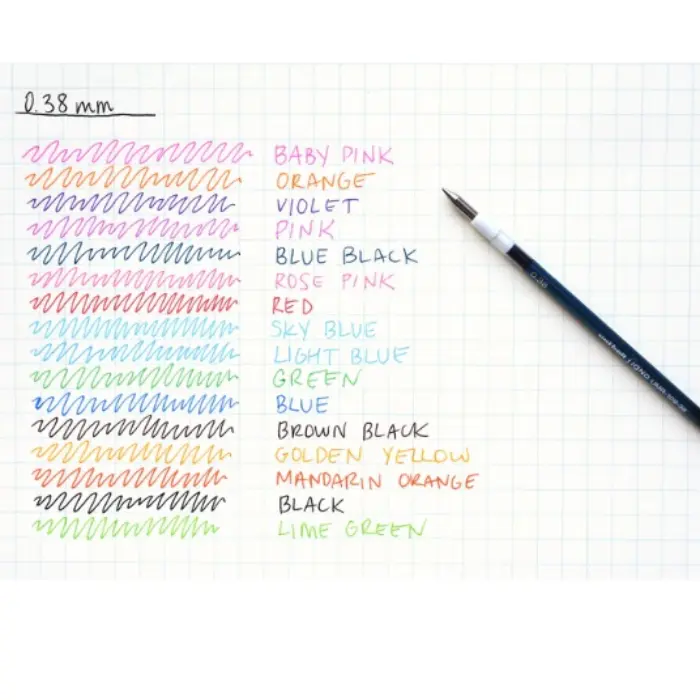 0.38 mm
BABY PINK
ORANGE
VIOLET
PINK
BLUE BLACK
ROSE PINK
RED
SKY BLUE
LIGHT BLUE
GREEN
BLUE
BROWN BLACK
GOLDEN YELLOW
MANDARIN ORANGE
BLACK
LIME GREEN
0.38